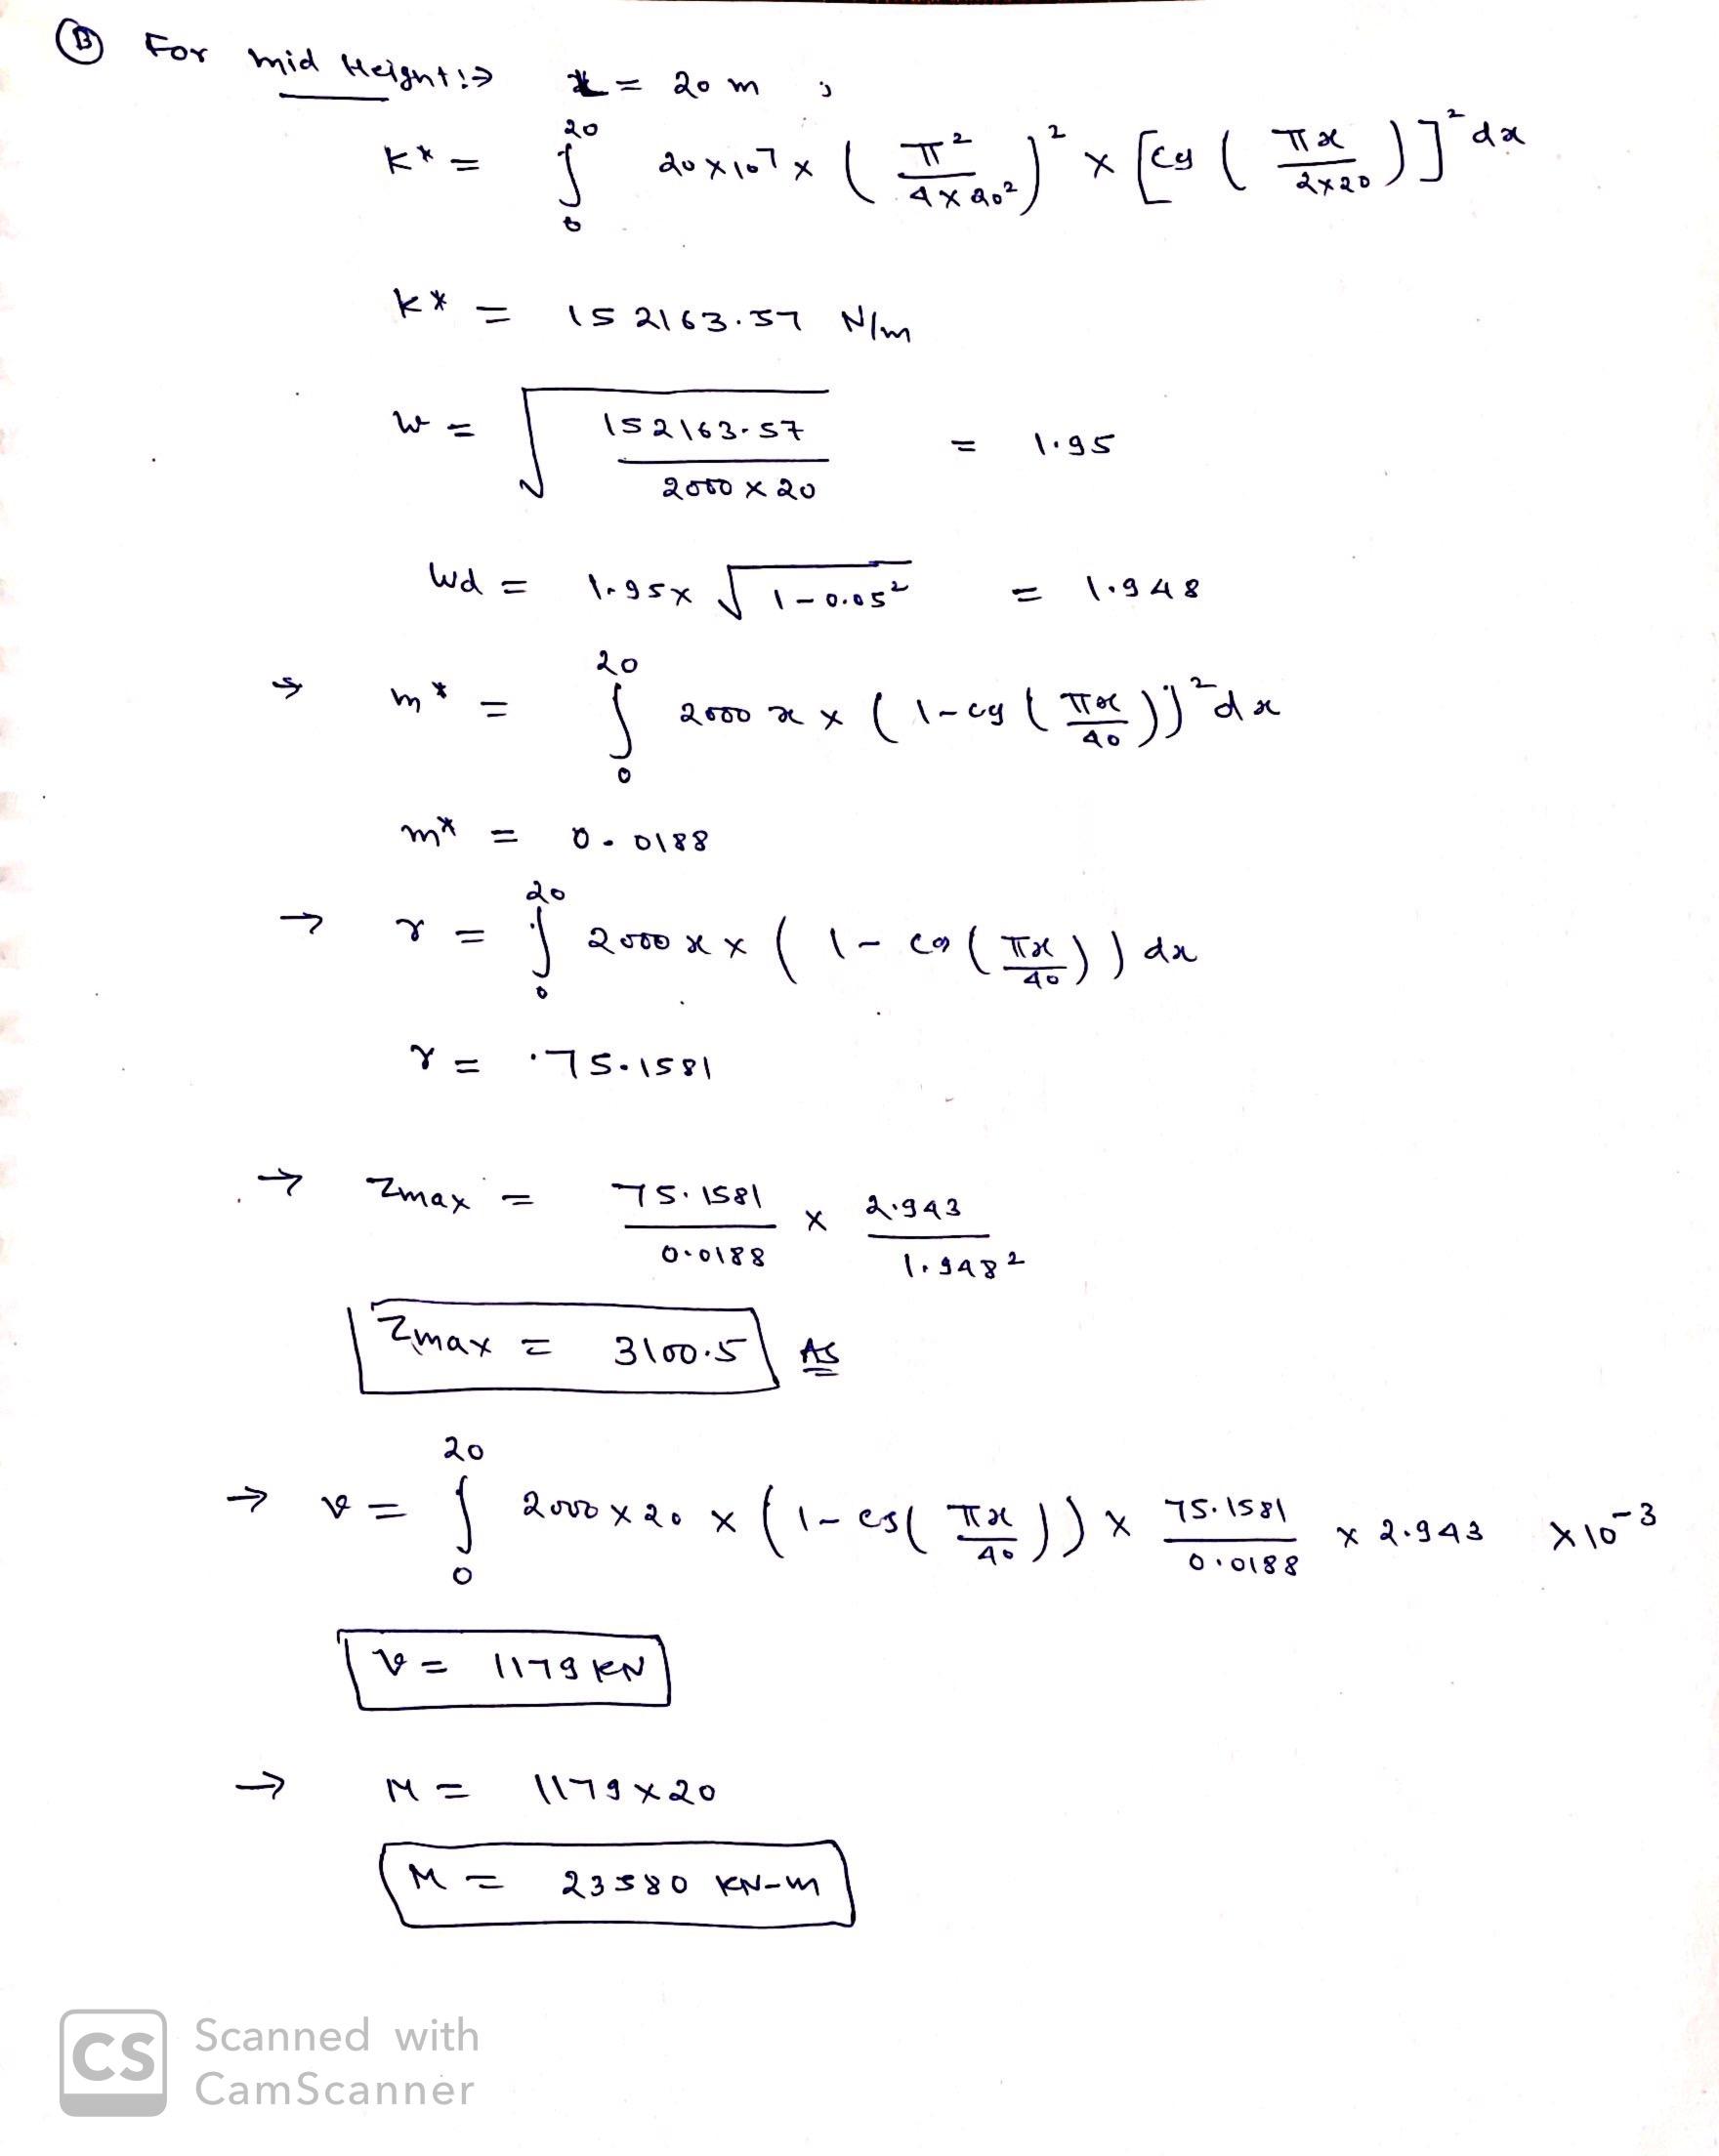 Ⓑ For mid Height :→ x = 20 m ;
K* = ∫₀²⁰ 20×10⁷ × (π² / 4×20²)² × [cos (πx / 2×20)]² dx
K* = 152163.57 N/m
w = √(152163.57 / 2000×20) = 1.95
wd = 1.95 × √(1-0.05²) = 1.948
→ m* = ∫₀²⁰ 2000 x × (1-cos (πx / 40))² dx
m* = 0.0188
→ r = ∫₀²⁰ 2000 x × (1 - cos (πx / 40)) dx
r = 75.1581
→ Zmax = 75.1581 / 0.0188 × 2.943 / 1.948²
Zmax = 3100.5 As
→ v = ∫₀²⁰ 2000 × 20 × (1 - cos( πx / 40 )) × 75.1581 / 0.0188 × 2.943 × 10⁻³
v = 1179 KN
→ M = 1179 × 20
M = 23580 KN-m
CS Scanned with
CamScanner